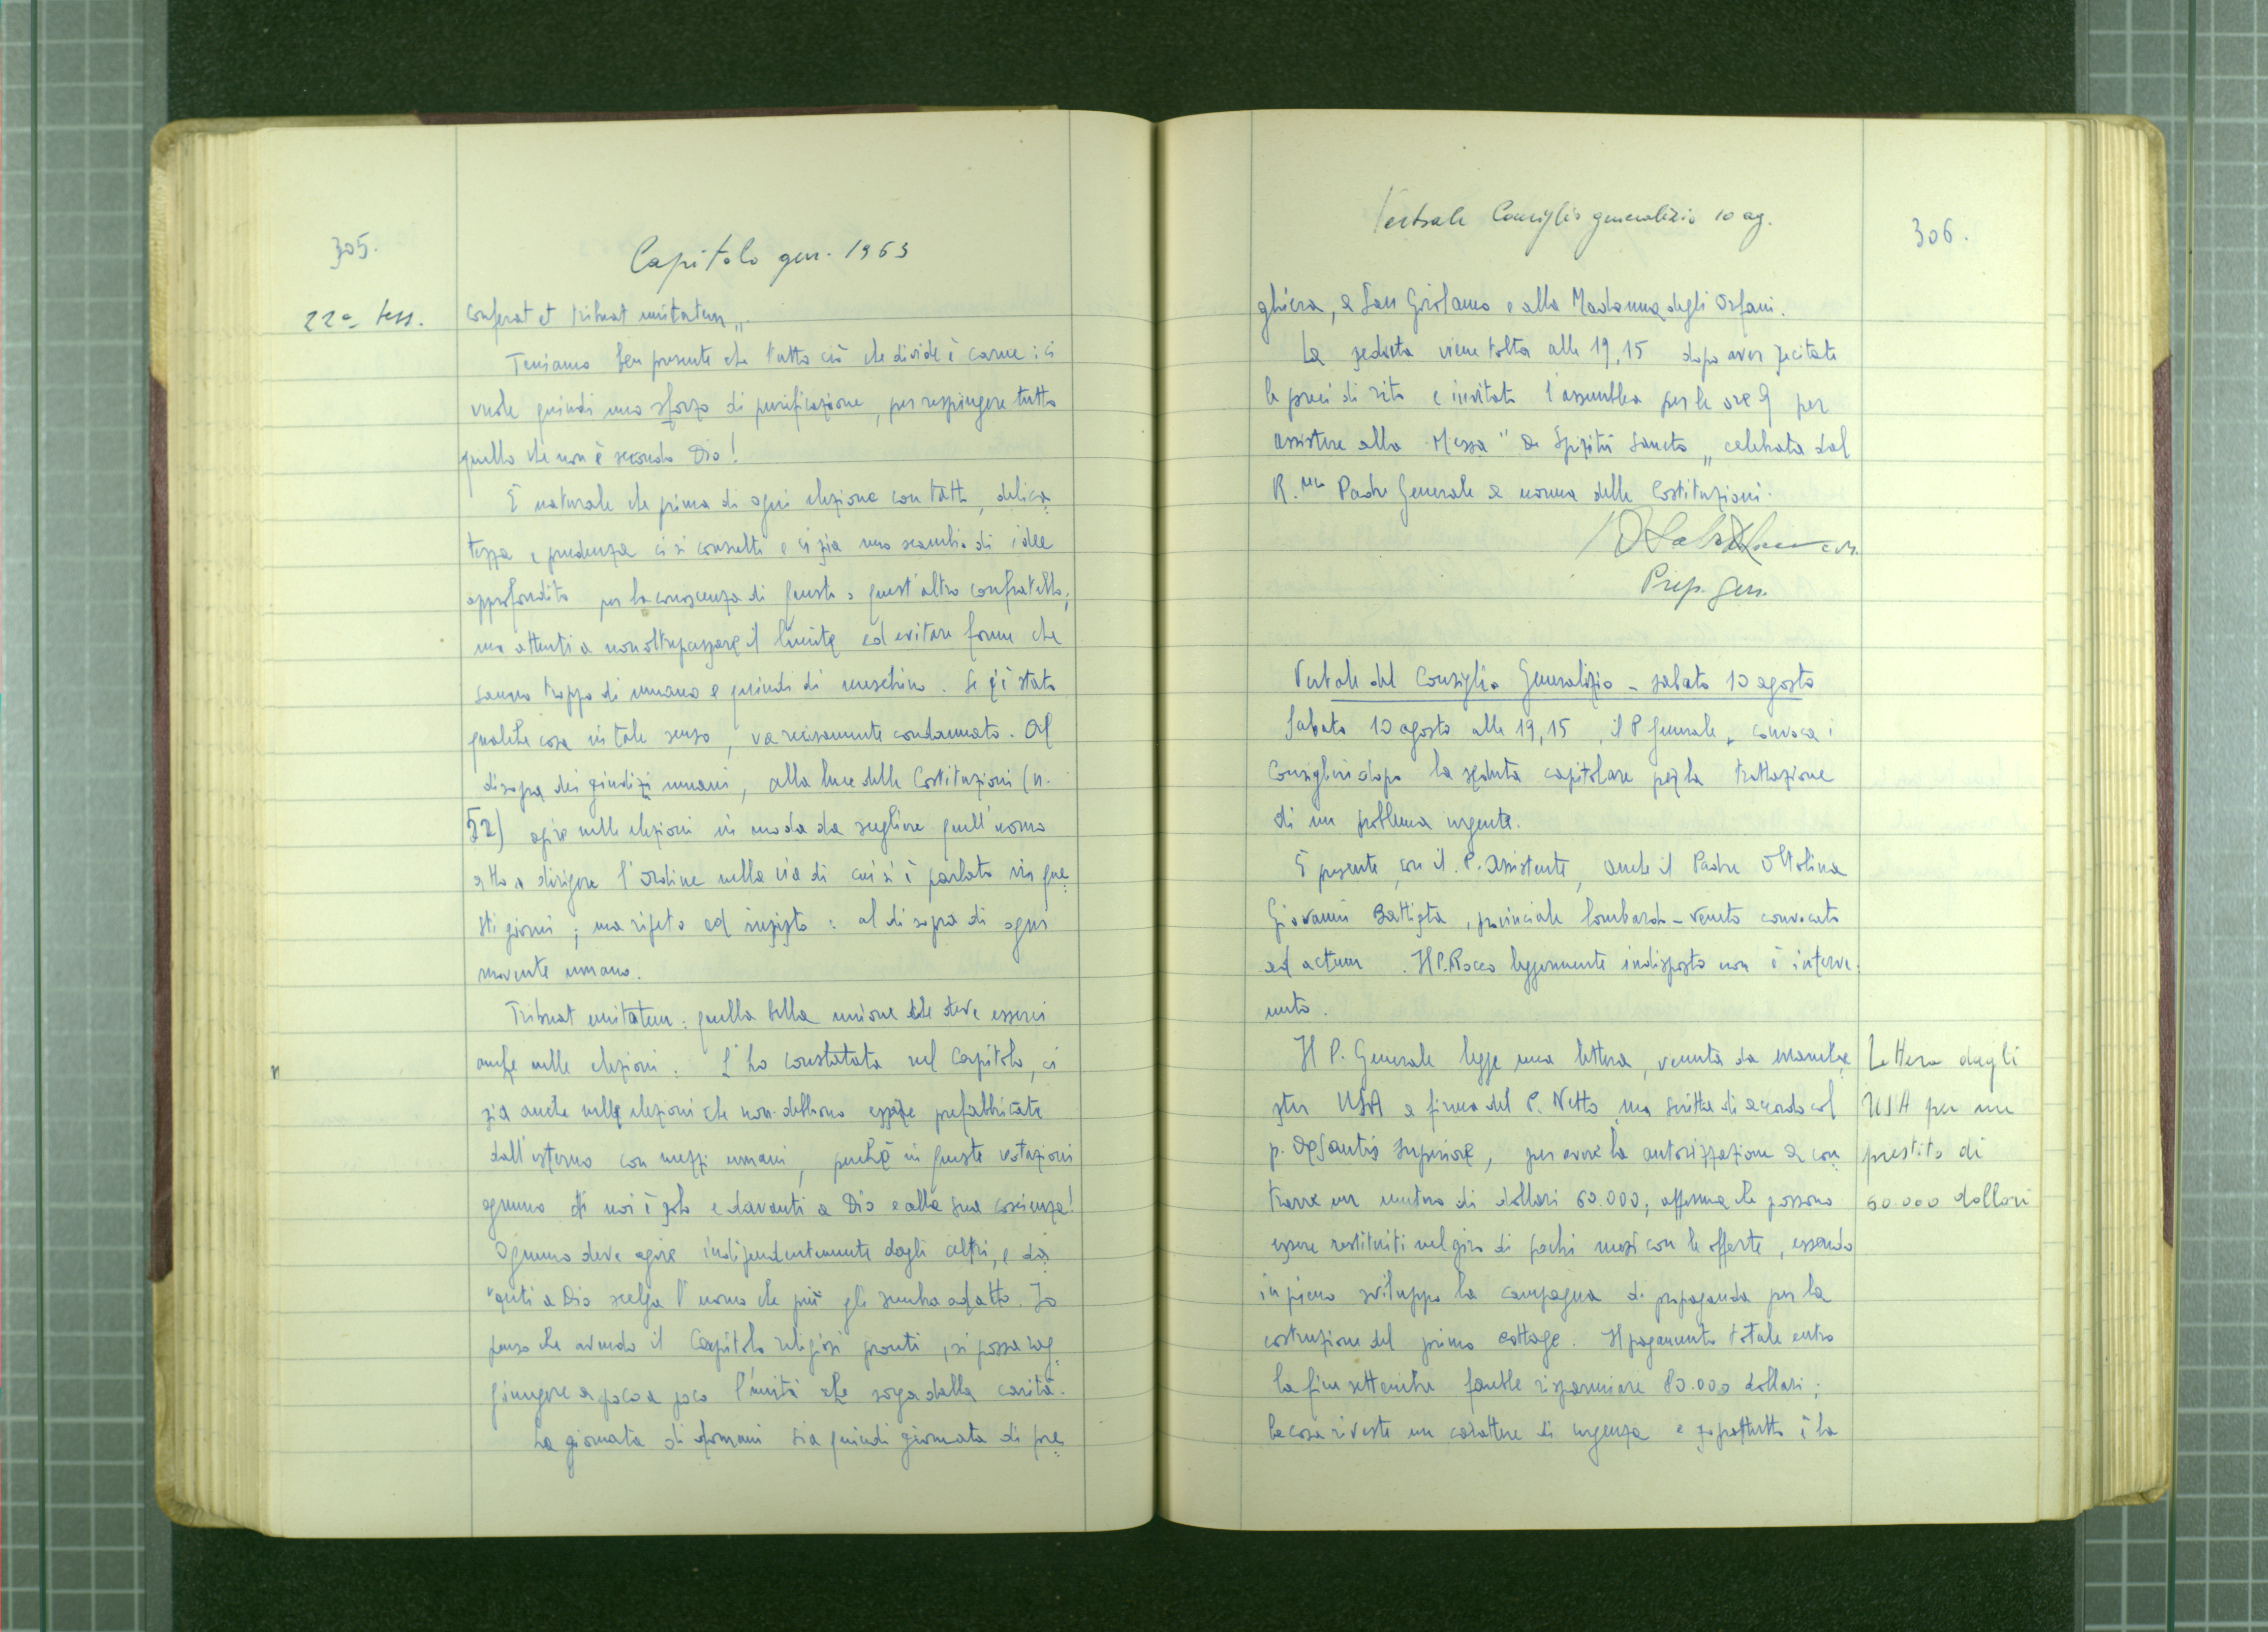 305.
Capitolo gen. 1963
22a sess.
conferat et tribuat unitatem„.
Teniamo ben presente che tutto ciò che divide è carne: ci
vuole quindi uno sforzo di purificazione, per respingere tutto
quello che non è secondo Dio!
È naturale che prima di ogni elezione con tatto, delica
tezza e prudenza ci si consulti e ci sia uno scambio di idee
approfondito per la conoscenza di questo o quest'altro confratello;
ma attenti a non oltrepassare il limite ed evitare forme che
sanno troppo di umano e quindi di meschino. Se c'è stato
qualche cosa in tale senso, va recisamente condannato. Al
disopra dei giudizi umani, alla luce delle Costituzioni (n.
52) agire nelle elezioni in modo da scegliere quell'uomo
atto a dirigere l'Ordine nella via di cui si è parlato in que
sti giorni; ma ripeto ed insisto: al di sopra di ogni
movente umano.
Tribuat unitatem: quella bella unione che deve esserci
anche nelle elezioni. L'ho constatata nel Capitolo, ci
sia anche nelle elezioni che non debbono essere prefabbricate
dall'esterno con mezzi umani, perché in queste votazioni
ognuno di noi è solo e davanti a Dio e alla sua coscienza!
Ognuno deve agire indipendentemente dagli altri, e da
vanti a Dio scelga l'uomo che più gli sembra adatto. Io
penso che avendo il Capitolo religiosi pronti, si possa rag
giungere a poco a poco l'unità che sorga dalla carità.
La giornata di domani sia quindi giornata di pre
Verbale Consiglio generalizio 10 ag.
306.
ghiera, a San Girolamo e alla Madonna degli Orfani.
La seduta viene tolta alle 19,15 dopo aver recitate
le preci di rito e invitata l'assemblea per le ore 9 per
assistere alla Messa "de Spiritu Sancto„ celebrata dal
R.mo Padre Generale a norma delle Costituzioni.
Prep. Gen.
Verbale del Consiglio Generalizio - sabato 10 agosto
Sabato 10 agosto alle 19,15, il P Generale, convoca i
Consiglieri dopo la seduta capitolare per la trattazione
di un problema urgente.
È presente, con il P. Assistente, anche il Padre Ottolina
Giovanni Battista, provinciale lombardo-veneto convocato
ad actum. Il P. Rocco leggermente indisposto non è interve
nuto.
Il P. Generale legge una lettera, venuta da Manche
ster USA a firma del P. Netto, ma scritta di accordo col
p. DeSantis superiore, per avere la autorizzazione a con
trarre un mutuo di dollari 60.000, afferma che possono
essere restituiti nel giro di pochi mesi con le offerte, essendo
in pieno sviluppo la campagna di propaganda per la
costruzione del primo cottage. Il pagamento totale entro
la fine settembre farebbe risparmiare 80.000 dollari;
la cosa riveste un carattere di urgenza e soprattutto è la
Lettera dagli
USA per un
prestito di
60.000 dollari